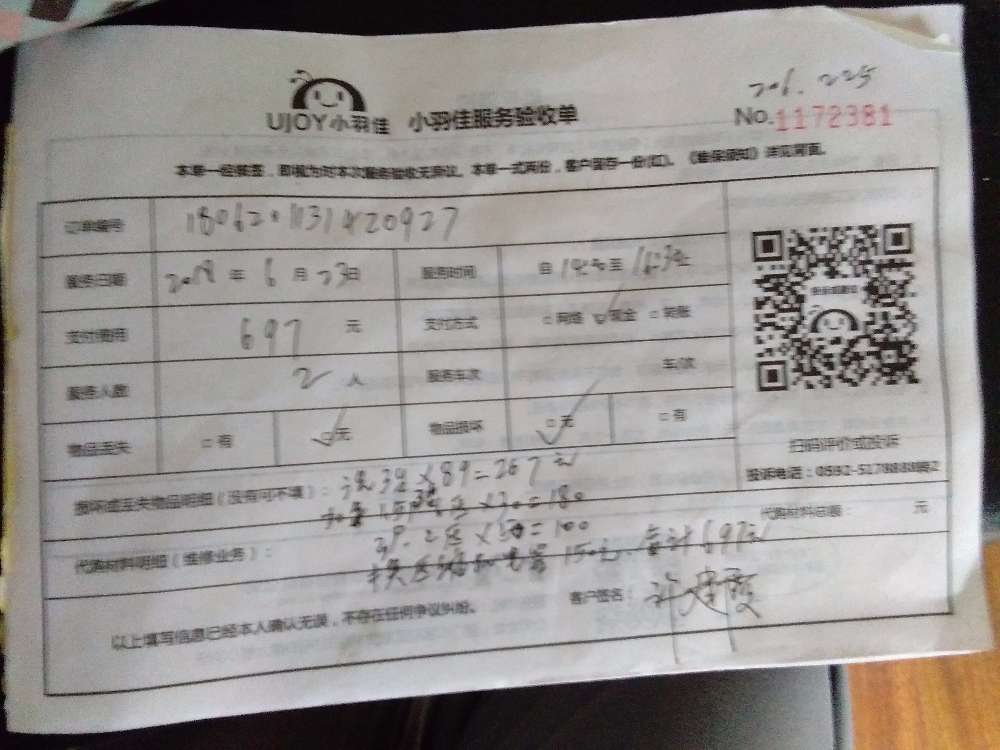 UJOY小羽佳 小羽佳服务验收单
No.1172381
本单一经签签，即视为对本次服务验收无异议。本单一式两份，客户留存一份(红)。《维保须知》详见背面。
订单编号
服务日期 2018 年 6 月 23 日 服务时间 自 至 16:30止
支付费用 697 元 支付方式 □网络 □现金 □转账
服务人数 2 人 服务车次 车/次
物品丢失 □有 □无 物品损坏 □无 □有
扫码评价或投诉
投诉电话：0592-5178888转2
损坏或丢失物品明细（没有可不填）： 洗3台×89=267元
×30=180
代购材料明细（维修业务）： =100
代购材料总额： 元
换压缩机电容 150元. 合计697元
客户签名：
以上填写信息已经本人确认无误，不存在任何争议纠纷。